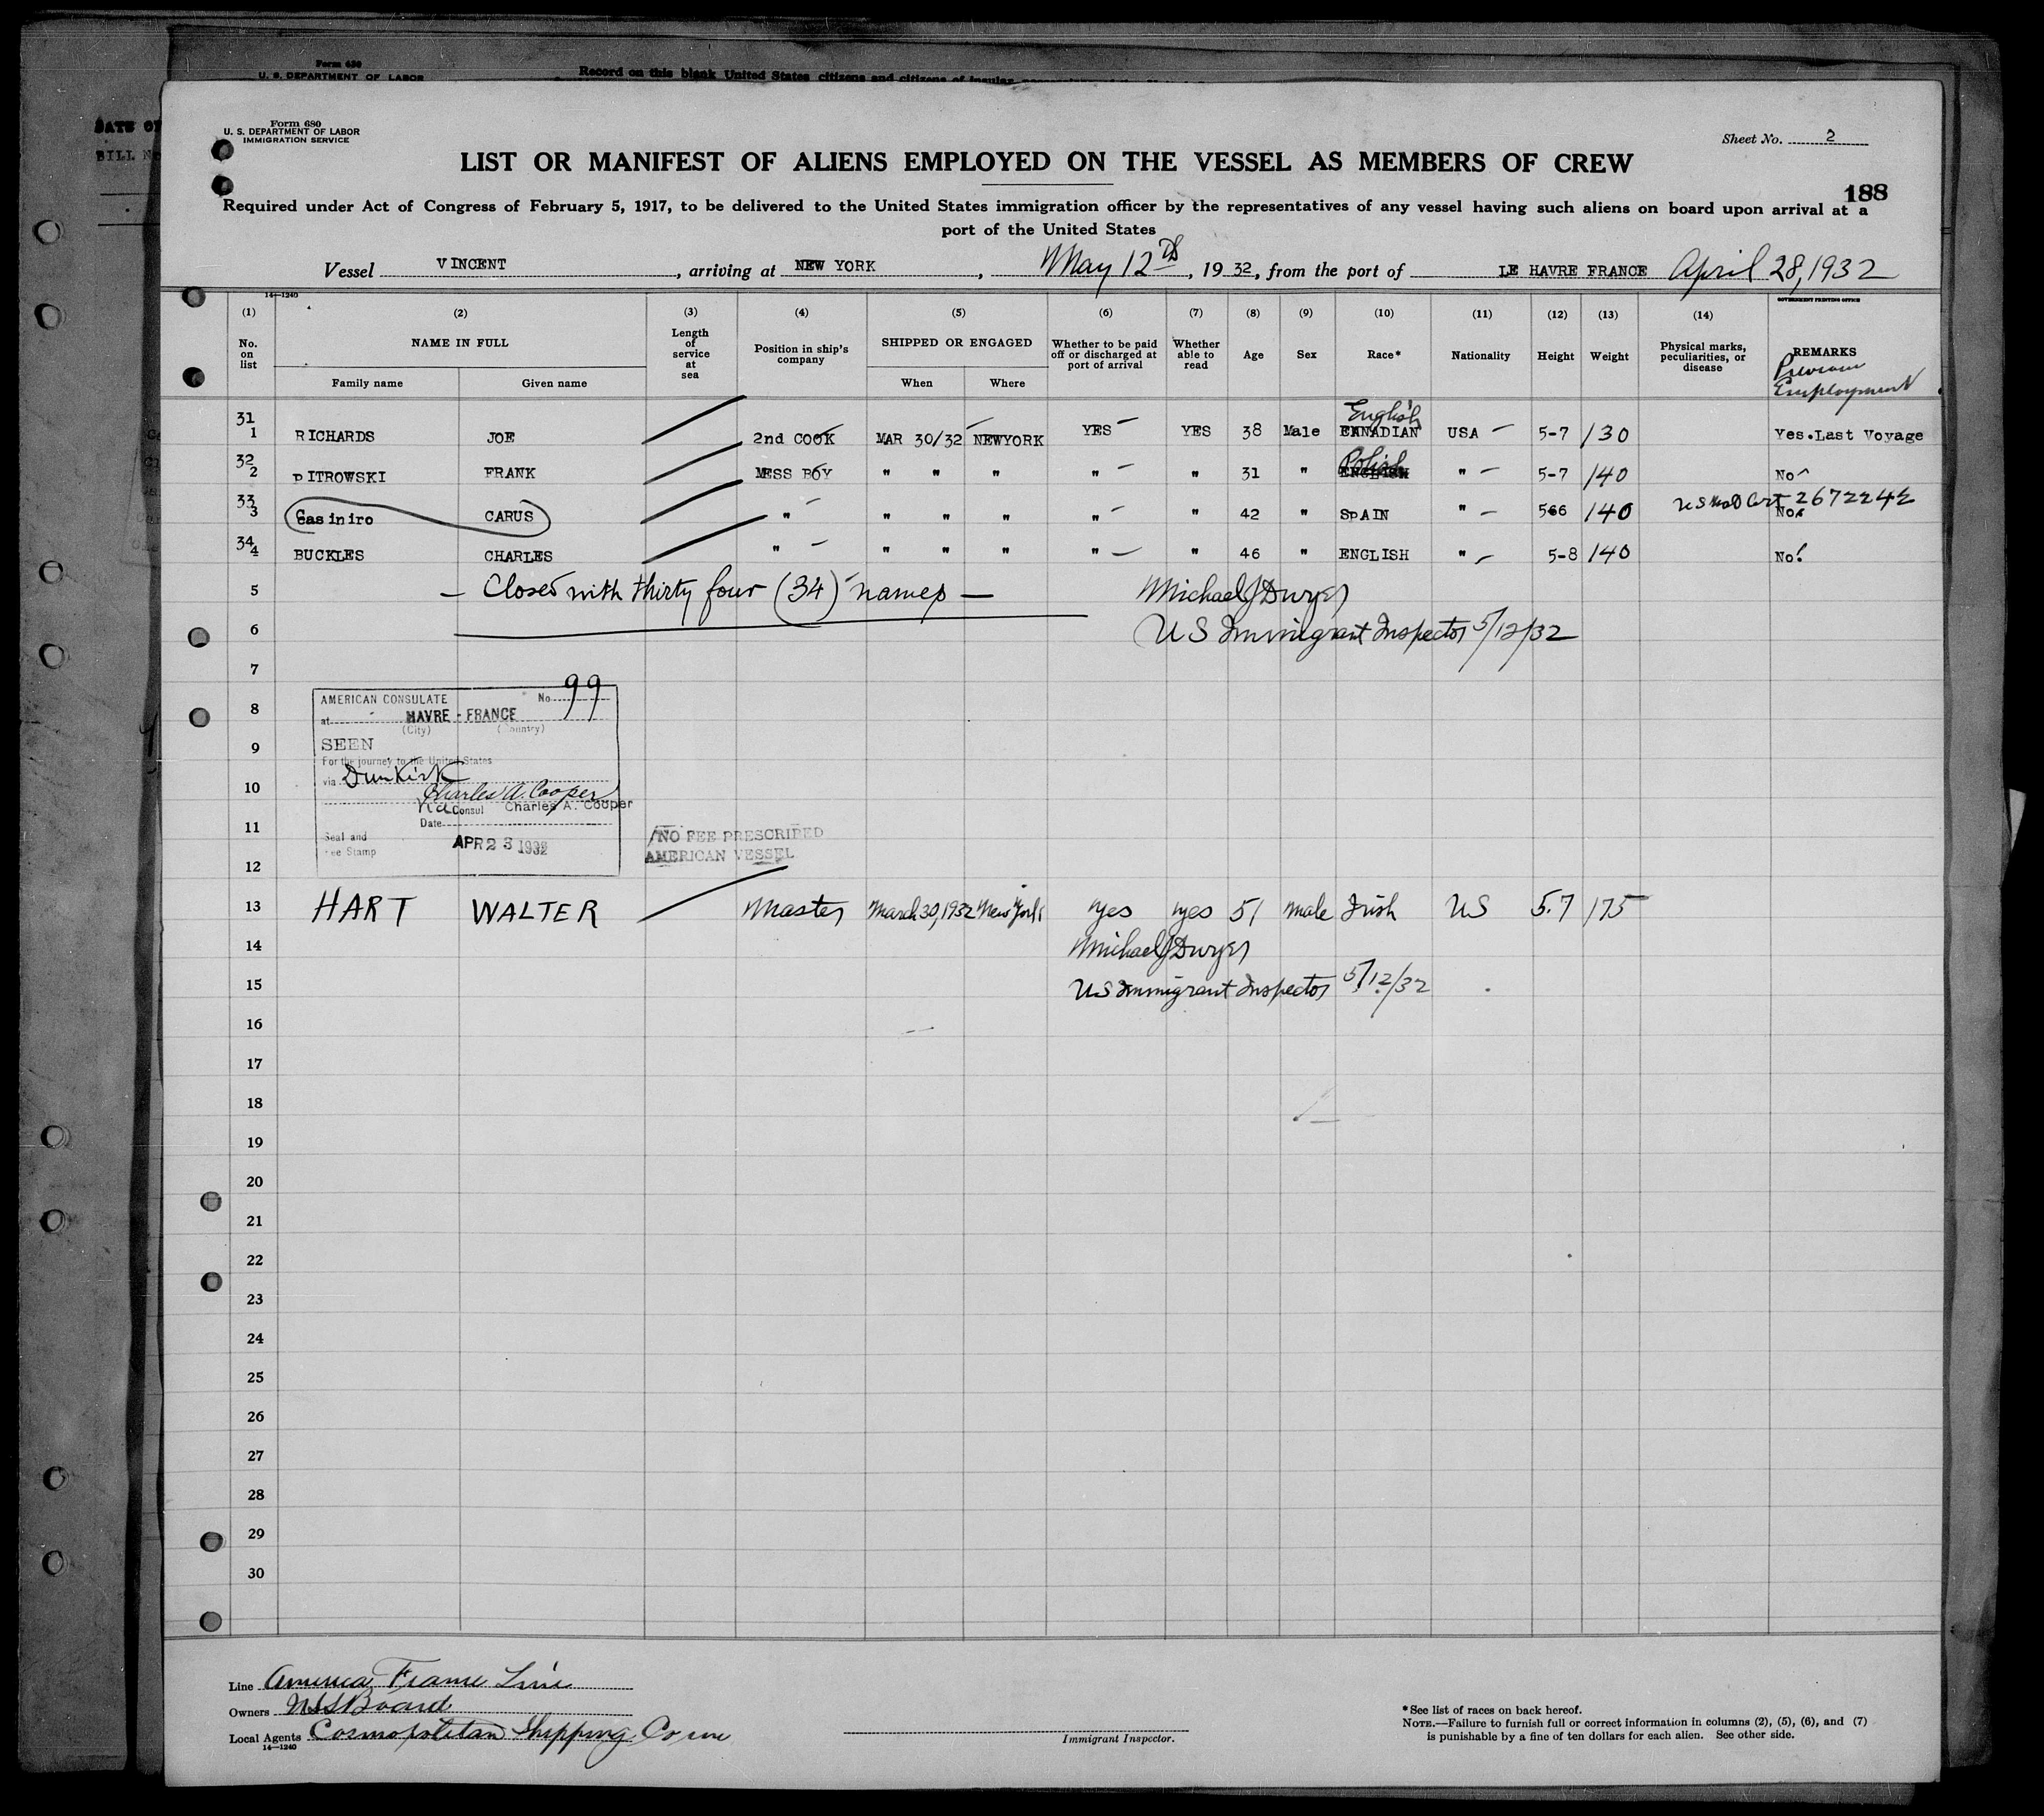 Form 680
U. S. DEPARTMENT OF LABOR
Record on this blank United States citizens and citizens of insular
DATE OF
BILL No
Form 680
U. S. DEPARTMENT OF LABOR
IMMIGRATION SERVICE
Sheet No. 2
LIST OR MANIFEST OF ALIENS EMPLOYED ON THE VESSEL AS MEMBERS OF CREW
188
Required under Act of Congress of February 5, 1917, to be delivered to the United States immigration officer by the representatives of any vessel having such aliens on board upon arrival at a
port of the United States
Vessel VINCENT, arriving at NEW YORK, May 12th, 1932, from the port of LE HAVRE FRANCE April 28, 1932
14—1240
GOVERNMENT PRINTING OFFICE
(1) (2) (3) (4) (5) (6) (7) (8) (9) (10) (11) (12) (13) (14)
No. on list NAME IN FULL Length of service at sea Position in ship's company SHIPPED OR ENGAGED Whether to be paid off or discharged at port of arrival Whether able to read Age Sex Race* Nationality Height Weight Physical marks, peculiarities, or disease REMARKS
Previous Employment
Family name Given name When Where
31 1 RICHARDS JOE 2nd COOK MAR 30/32 NEWYORK YES YES 38 Male English CANADIAN USA 5-7 130 Yes.Last Voyage
32 2 PITROWSKI FRANK MESS BOY " " " " " 31 " Polish ENGLISH " 5-7 140 No
33 3 Casiniro CARUS " " " " " " 42 " SPAIN " 566 140 US Nat Cert 2672242 No.
34 4 BUCKLES CHARLES " " " " " " 46 " ENGLISH " 5-8 140 No!
5 — Closed with thirty four (34) names — Michael J Dwyer
6 US Immigrant Inspector 5/12/32
7
AMERICAN CONSULATE No. 99
8
at HAVRE - FRANCE
(City) (Country)
9
SEEN
For the journey to the United States
via Dunkirk
10
Charles A. Cooper
Vice Consul Charles A. Cooper
Date
11
Seal and
Fee Stamp
APR 23 1932
NO FEE PRESCRIBED
AMERICAN VESSEL
12
13 HART WALTER Master March 30, 1932 New York yes yes 51 male Irish US 5.7 175
14 Michael J Dwyer
15 US Immigrant Inspector 5/12/32
16
17
18
19
20
21
22
23
24
25
26
27
28
29
30
Line America France Line
Owners USSBoard
Local Agents Cosmopolitan Shipping Co
14—1240
Immigrant Inspector.
*See list of races on back hereof.
NOTE.—Failure to furnish full or correct information in columns (2), (5), (6), and (7)
is punishable by a fine of ten dollars for each alien. See other side.